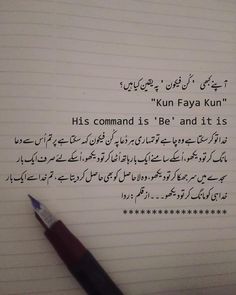 آپنے کبھی ' کُن فیکون ' پہ یقین کیا ہیں ؟
"Kun Faya Kun"
His command is 'Be' and it is
خدا تو کر سکتا ہے وہ چاہے تو تمہاری ہر دُعا پہ کُن فیکون کہہ سکتا ہے پر تم اُس سے دعا
مانگ کر تو دیکھو، اُسکے سامنے ایک بار ہاتھ اُٹھا کر تو دیکھو، اُسکے لئے صرف ایک بار
سجدے میں سر جھکا کر تو دیکھو، وہ لا حاصل کو بھی حاصل کر دیتا ہے، تم خدا سے ایک بار
خدا ہی کو مانگ کر تو دیکھو۔۔۔ از قلم : ردا
******************